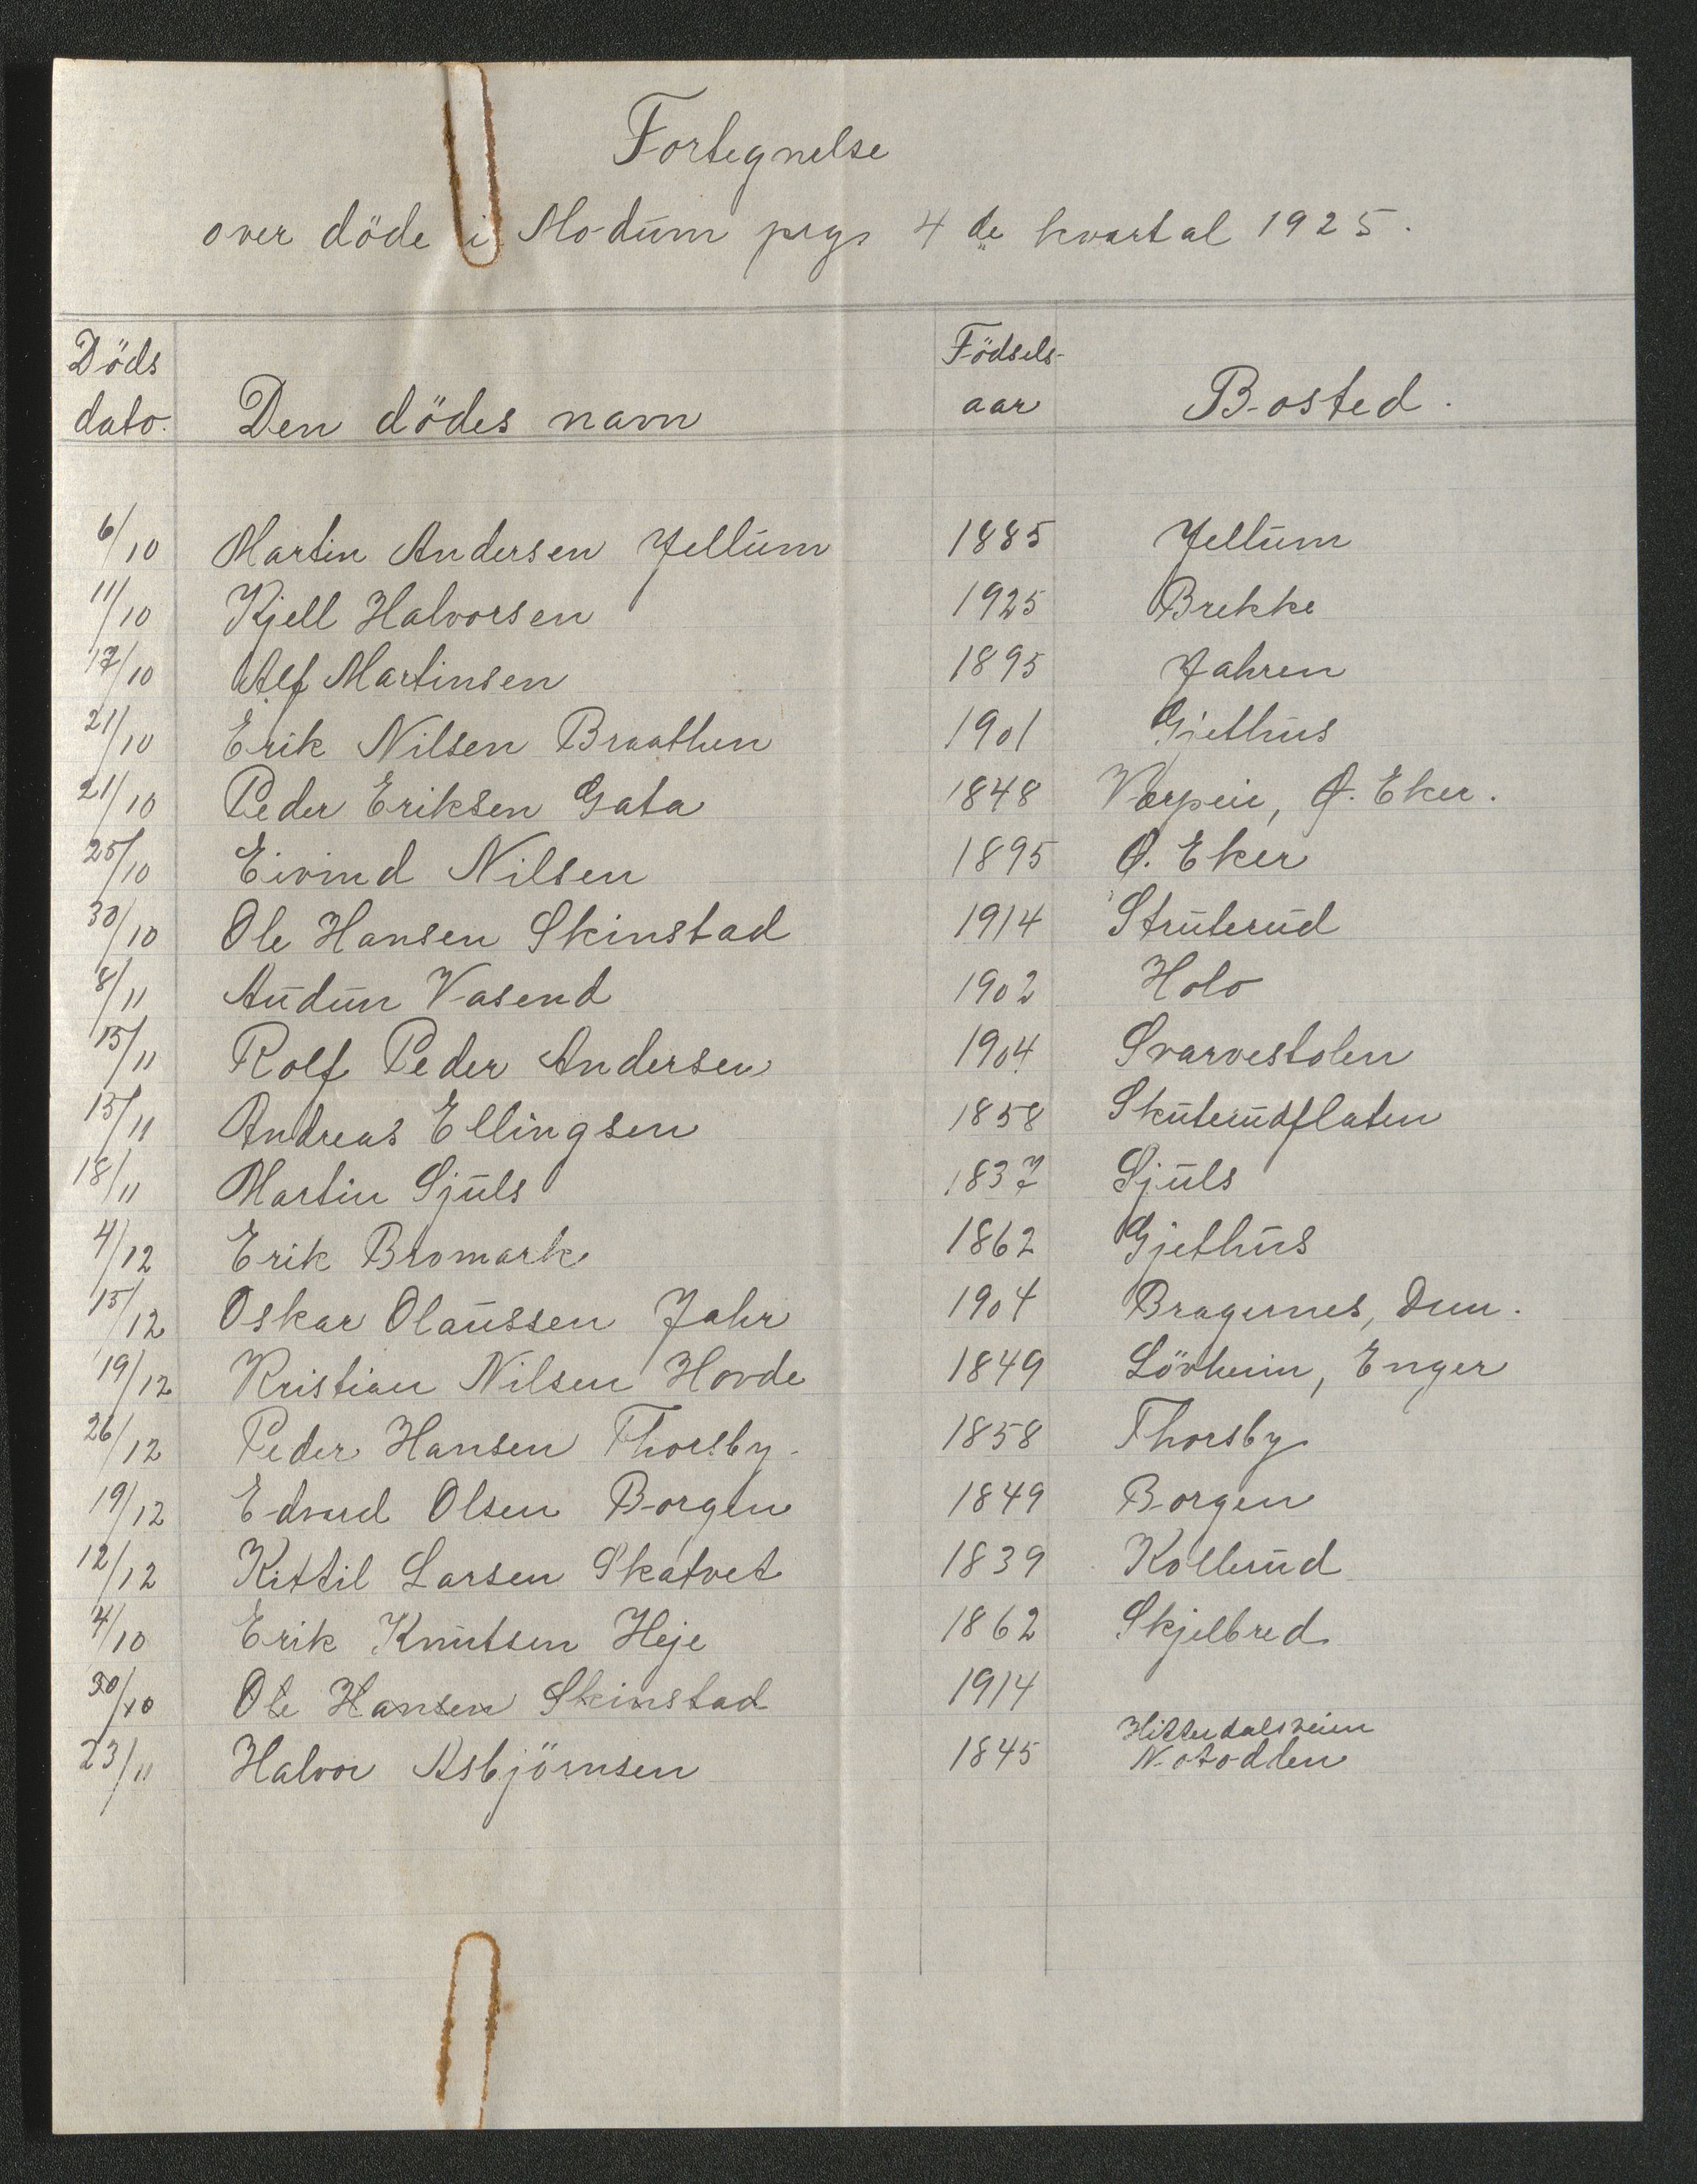 Fortegnelse
over döde i Modum prgj 4de kvartal 1925.
Döds dato. Den dödes navn Födsels-aar Bosted.
6/10 Martin Andersen Jellum 1885 Jellum
11/10 Kjell Halvorsen 1925 Brekke
17/10 Alf Martinsen 1895 Jahren
21/10 Erik Nilsen Braathen 1901 Gjethus
21/10 Peder Eriksen Gata 1848 Ø. Eker.
25/10 Eivind Nilsen 1895 Ø. Eker
30/10 Ole Hansen Skinstad 1914 Struterud
8/11 Audun Vasend 1902 Holo
15/11 Rolf Peder Andersen 1904 Svarvestolen
15/11 Andreas Ellingsen 1858 Skuterudflaten
18/11 Martin Sjuls 1837 Sjuls
4/12 Erik Bromark 1862 Gjethus
15/12 Oskar Olaussen Jahr 1904 Bragernes, Dmn.
19/12 Kristian Nilsen Hovde 1849 Lövheim, Enger
26/12 Peder Hansen Thorsby. 1858 Thorsby
19/12 Edvard Olsen Borgen 1849 Borgen
12/12 Kittil Larsen Skatvet 1839 Kollerud
4/10 Erik Knutsen Heje 1862 Skjelbred
30/10 Ole Hansen Skinstad 1914
23/11 Halvor Asbjörnsen 1845 Hitterdalsveien
Notodden